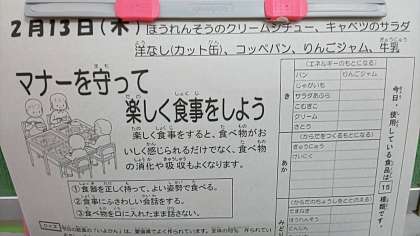 2月13日(木) ほうれんそうのクリームシチュー、キャベツのサラダ
洋なし(カット缶)、コッペパン、りんごジャム、牛乳
マナーを守って
楽しく食事をしよう
楽しく食事をすると、食べ物がお
いしく感じられるだけでなく、食べ物
の消化や吸収もよくなります。
①食器を正しく持って、よい姿勢で食べる。
②食事にふさわしい会話をする。
③食べ物を口に入れたまま話さない。
クイズ
今日・使用している食品は15種類です。
き
(エネルギーのもとになる)
パン りんごジャム
じゃがいも
サラダあぶら
こむぎこ
クリーム
さとう
あか
(からだをつくるもとになる)
ぎゅうにゅう
とりにく
みどり
(からだのちょうしをととのえる)
たまねぎ
ほうれんそう
にんじん